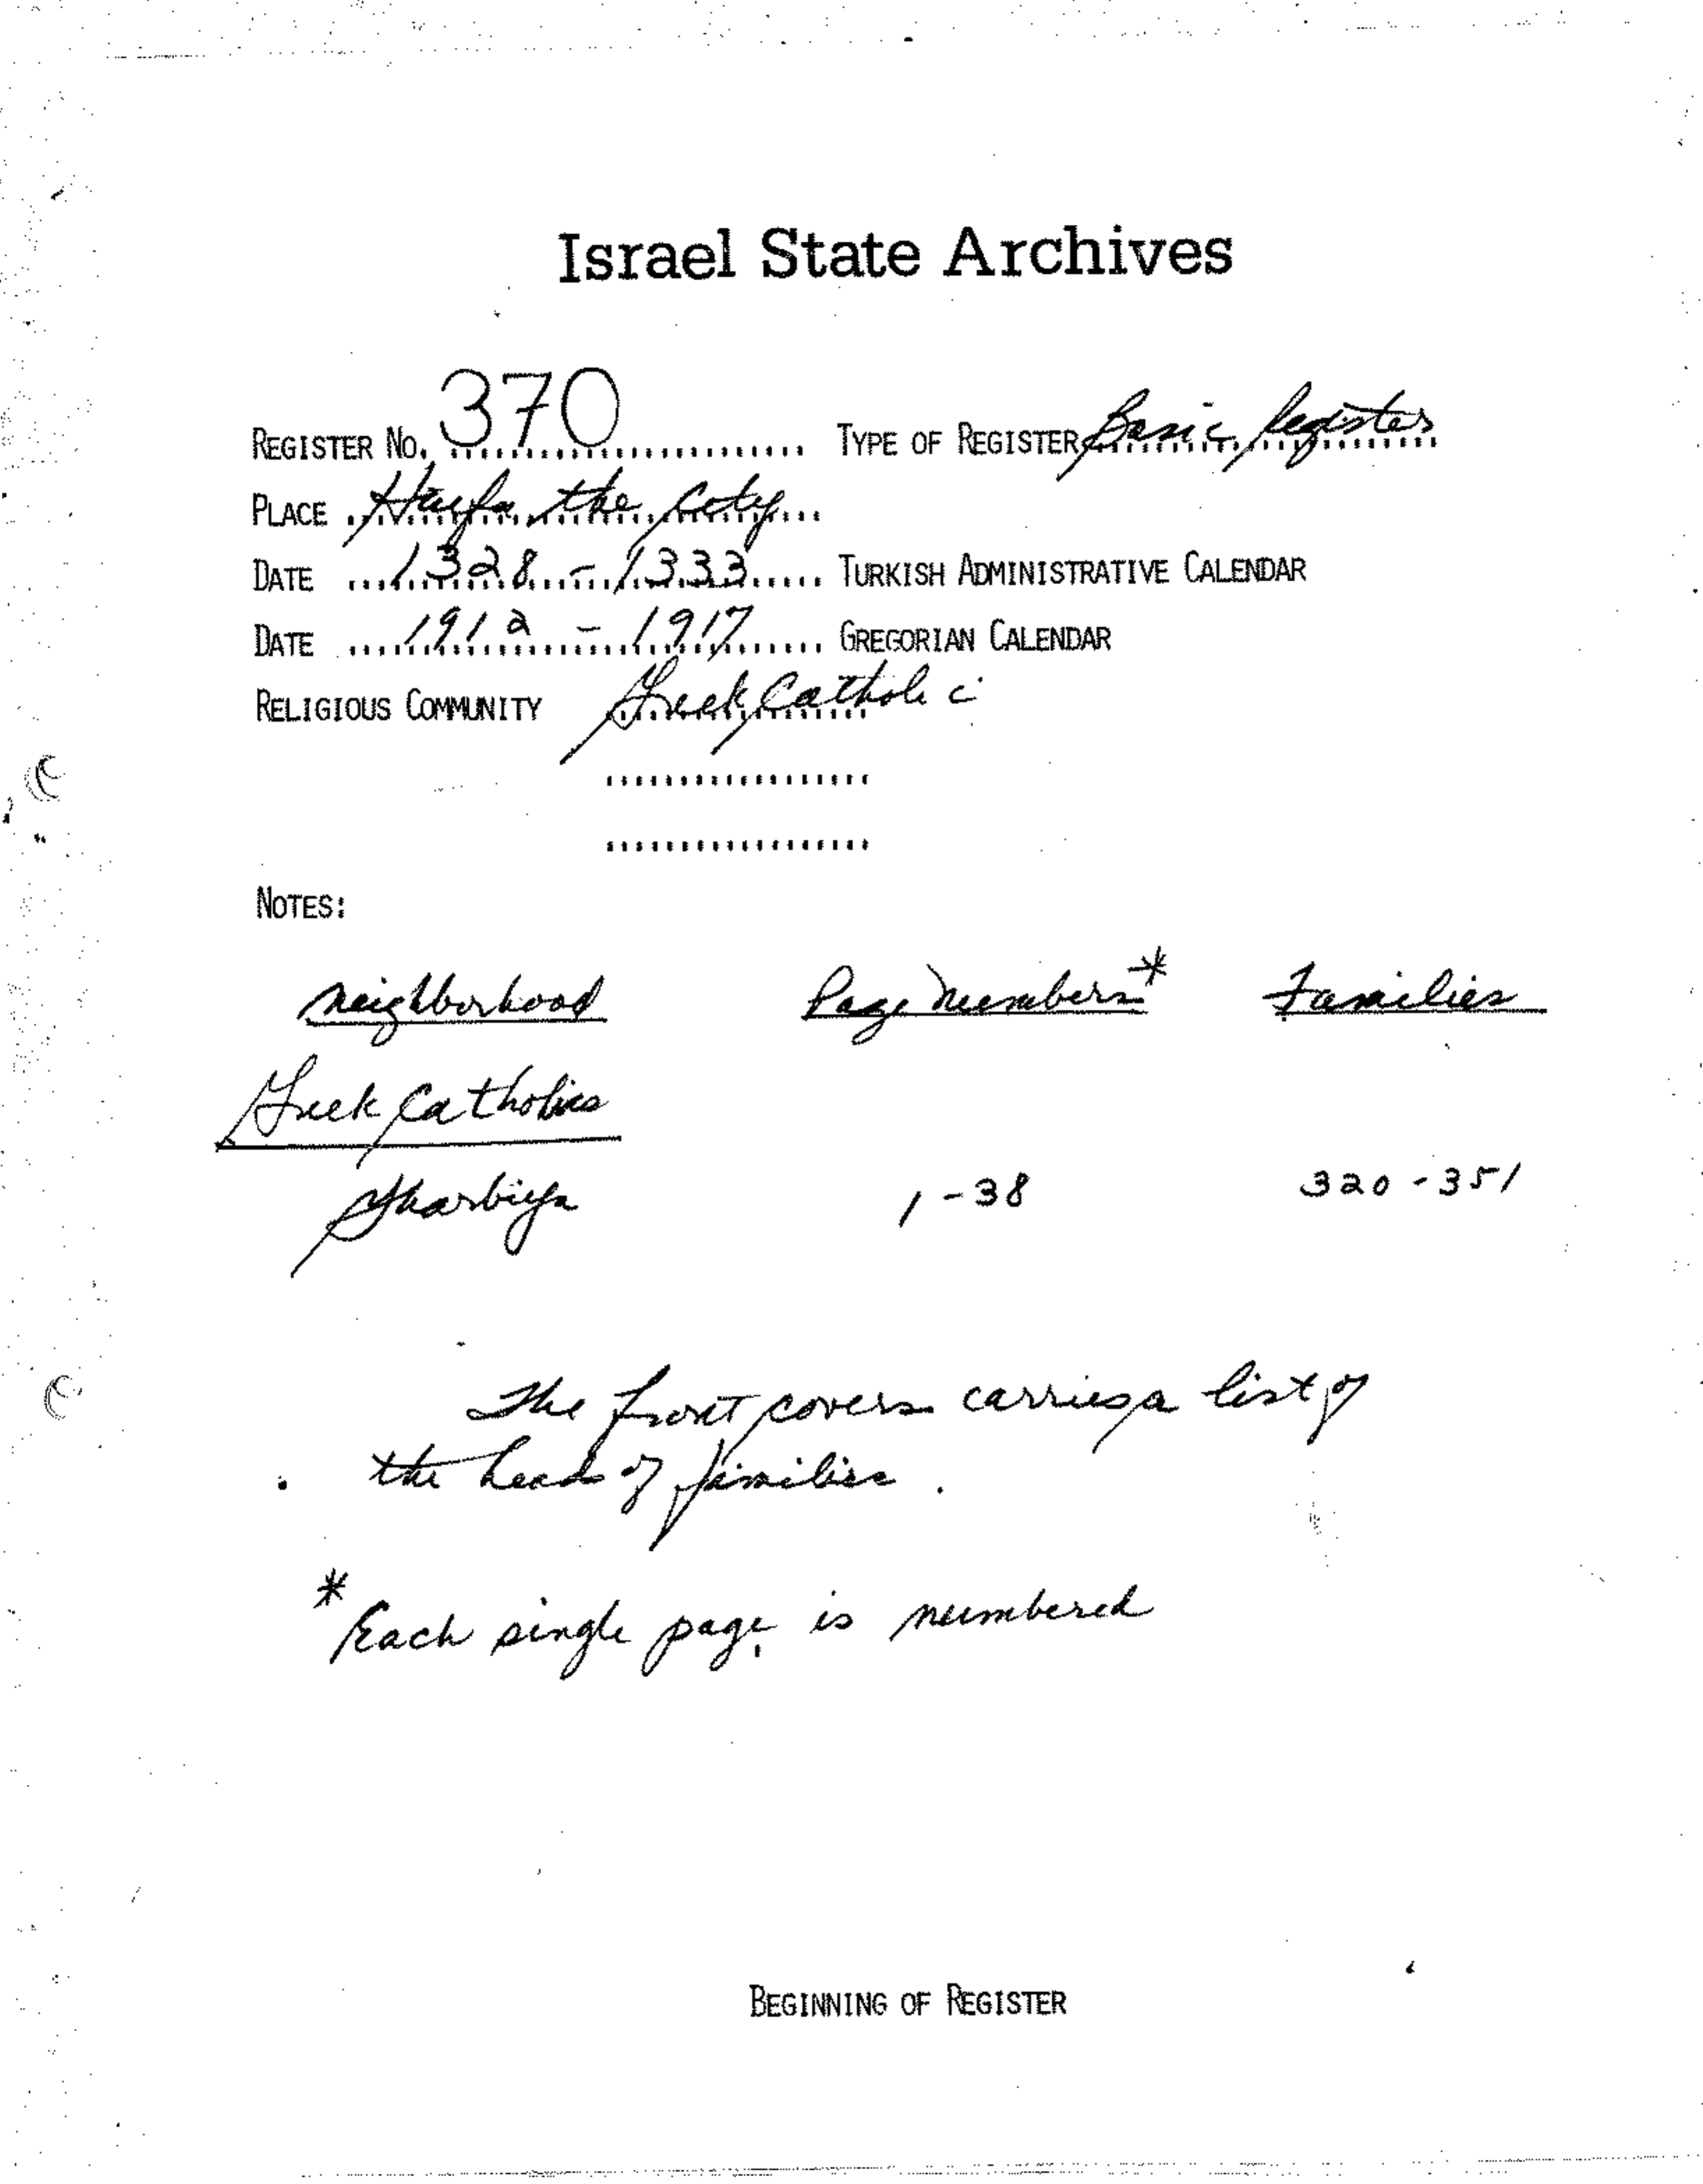 Israel State Archives
REGISTER No. 370 TYPE OF REGISTER Basic Register
PLACE Haifa the City
DATE 1328 - 1333 TURKISH ADMINISTRATIVE CALENDAR
DATE 1912 - 1917 GREGORIAN CALENDAR
RELIGIOUS COMMUNITY Greek Catholic
NOTES:
Neighborhood Page Numbers* Families
Greek Catholics
Gharbiya 1-38 320-351
The front covers carries a list of
the heads of families.
*Each single page is numbered
BEGINNING OF REGISTER